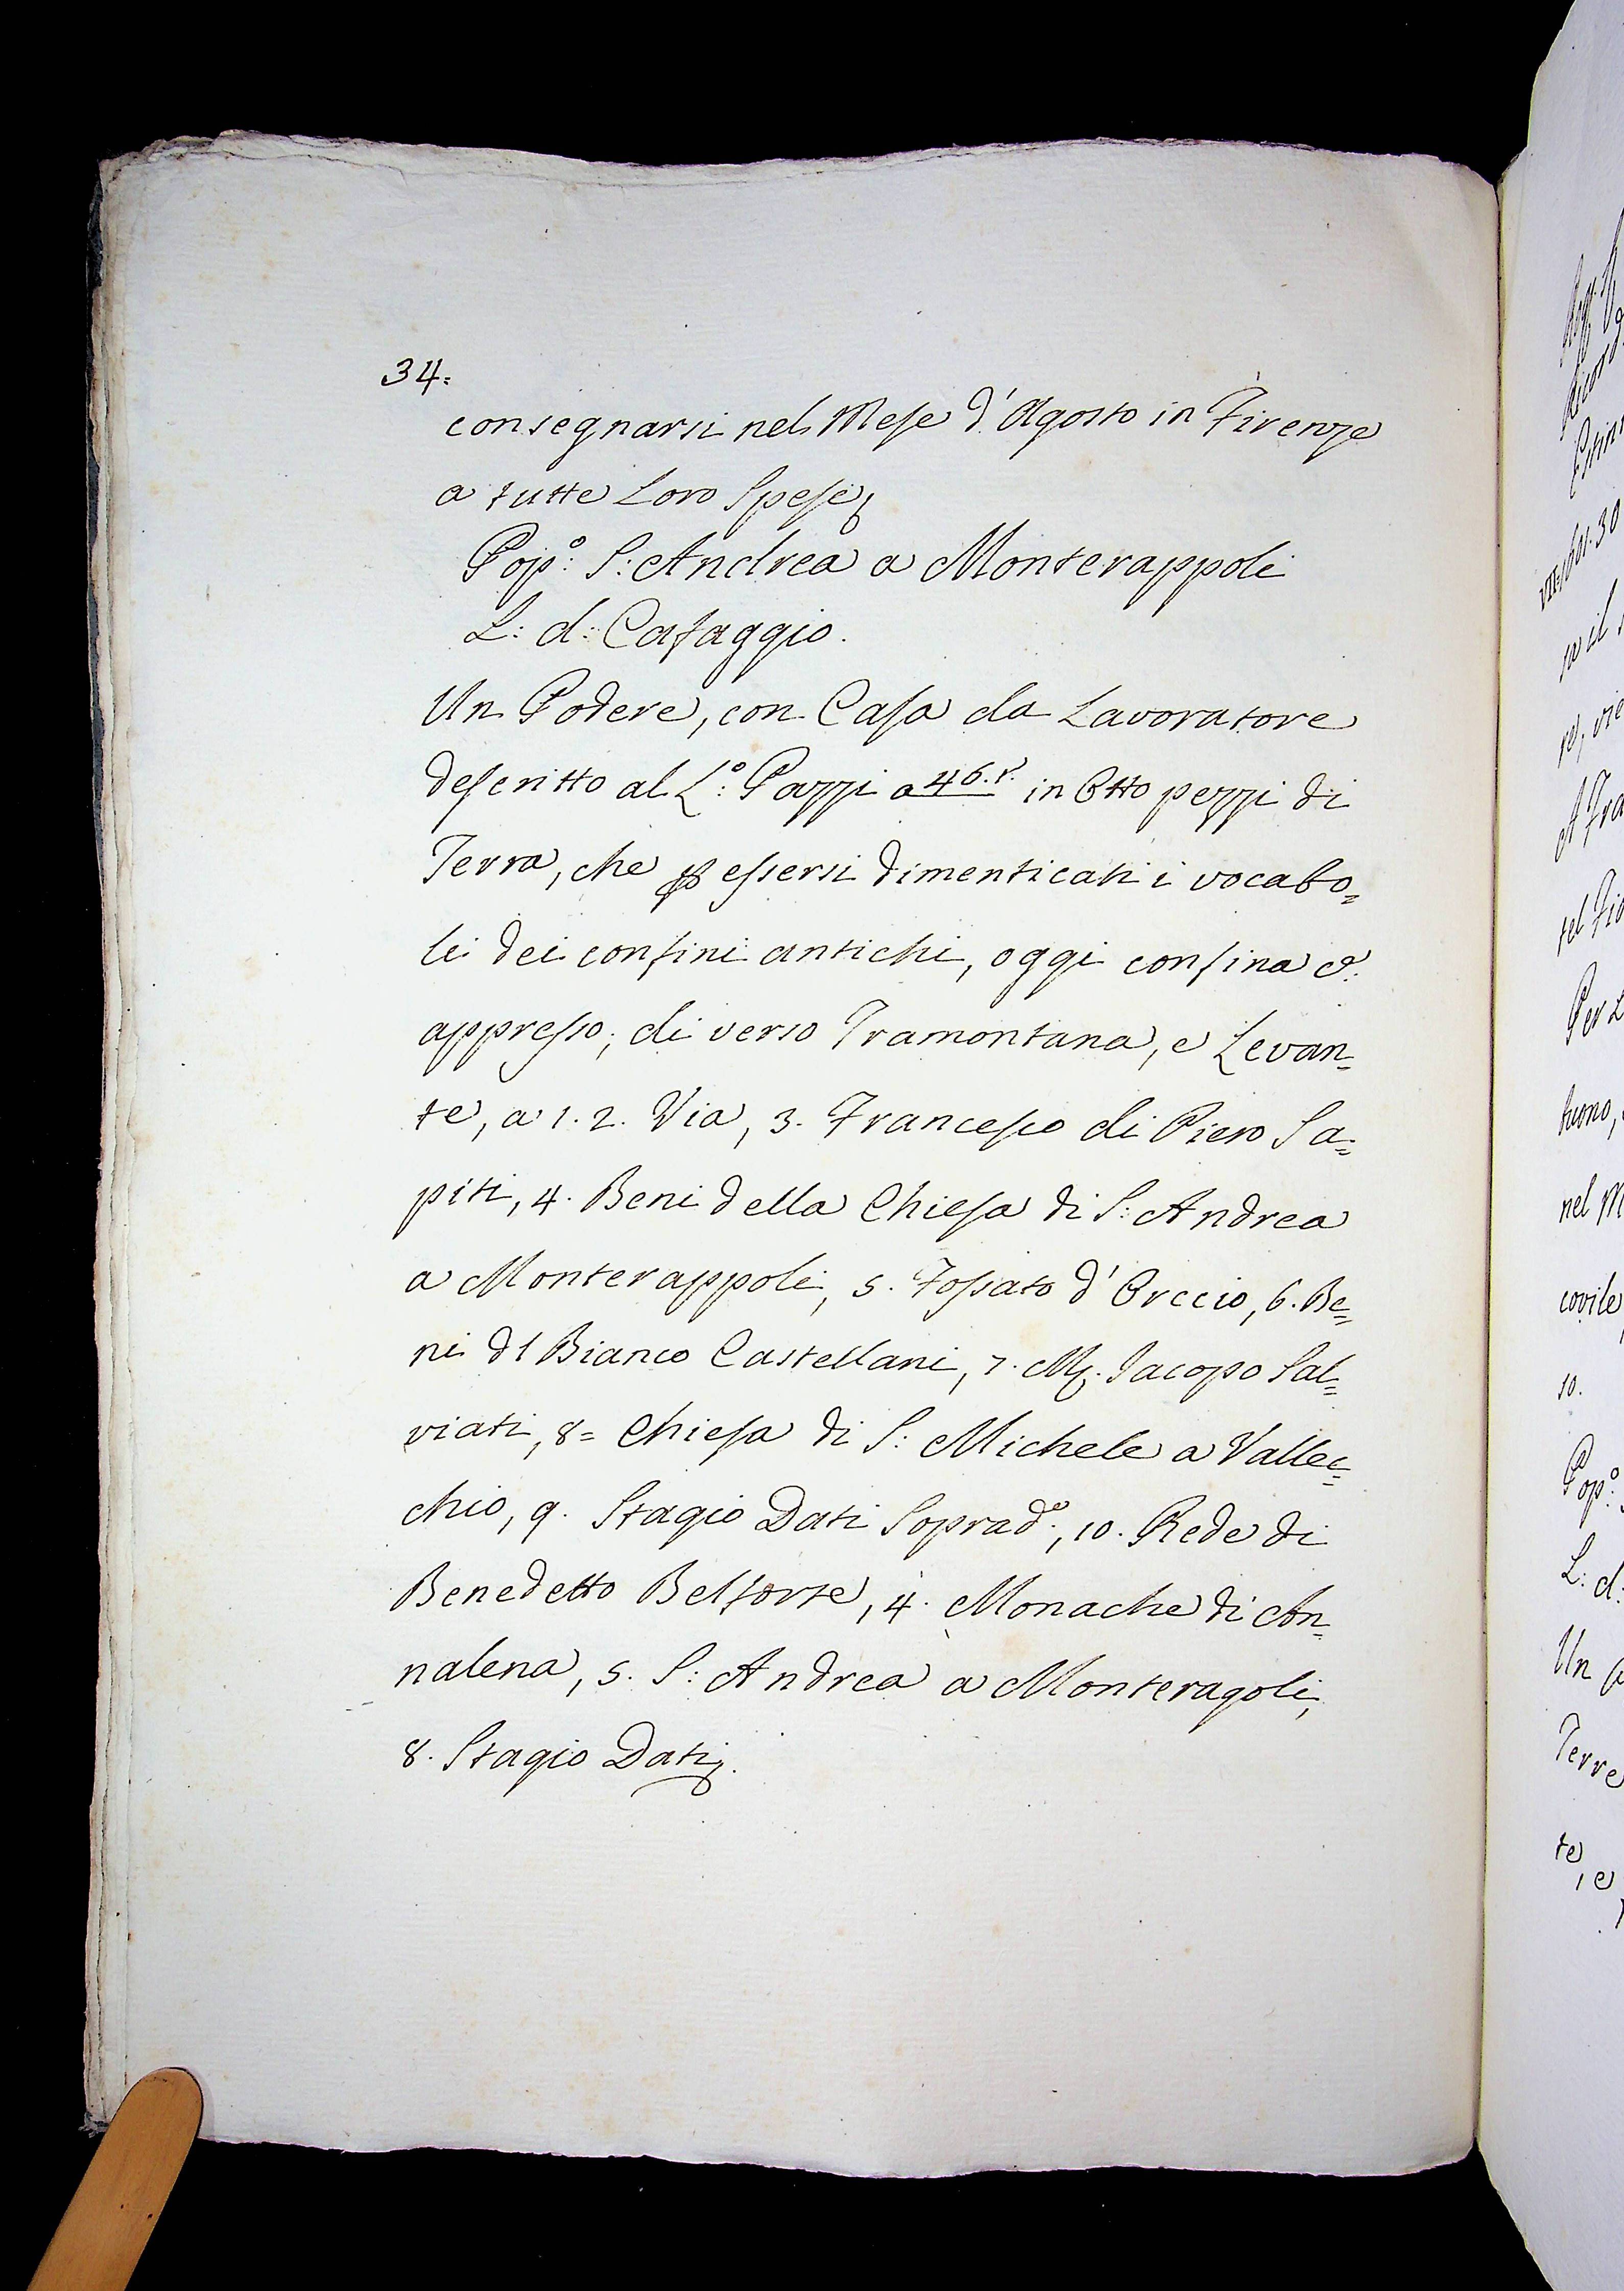 34.
consegnarsi nel Mese d'Agosto in Firenze
a tutte Loro Spese
Pop.º S: Andrea a Monterappoli
L: d: Cafaggio.
Un Podere, con Casa da Lavoratore
descritto al L.º Pazzi a 46. in Otto pezzi di
Terra, che ꝑ essersi dimenticati i vocabo=
li dei confini antichi, oggi confina
appresso; di verso Tramontana, e Levan=
te, a 1. 2. Via, 3. Francesco di Piero Sa=
piti, 4. Beni della Chiesa di S: Andrea
a Monterappoli, 5. Fossato d'Orccio, 6. Be=
ni dl Bianco Castellani, 7. M. Jacopo Sal=
viati, 8= Chiesa di S: Michele a Vallec=
chio, 9. Stagio Dati Soprad.º, 10. Rede di
Benedetto Belforte, 4. Monache di An=
nalena, 5. S: Andrea a Monteragoli,
8. Stagio Dati.